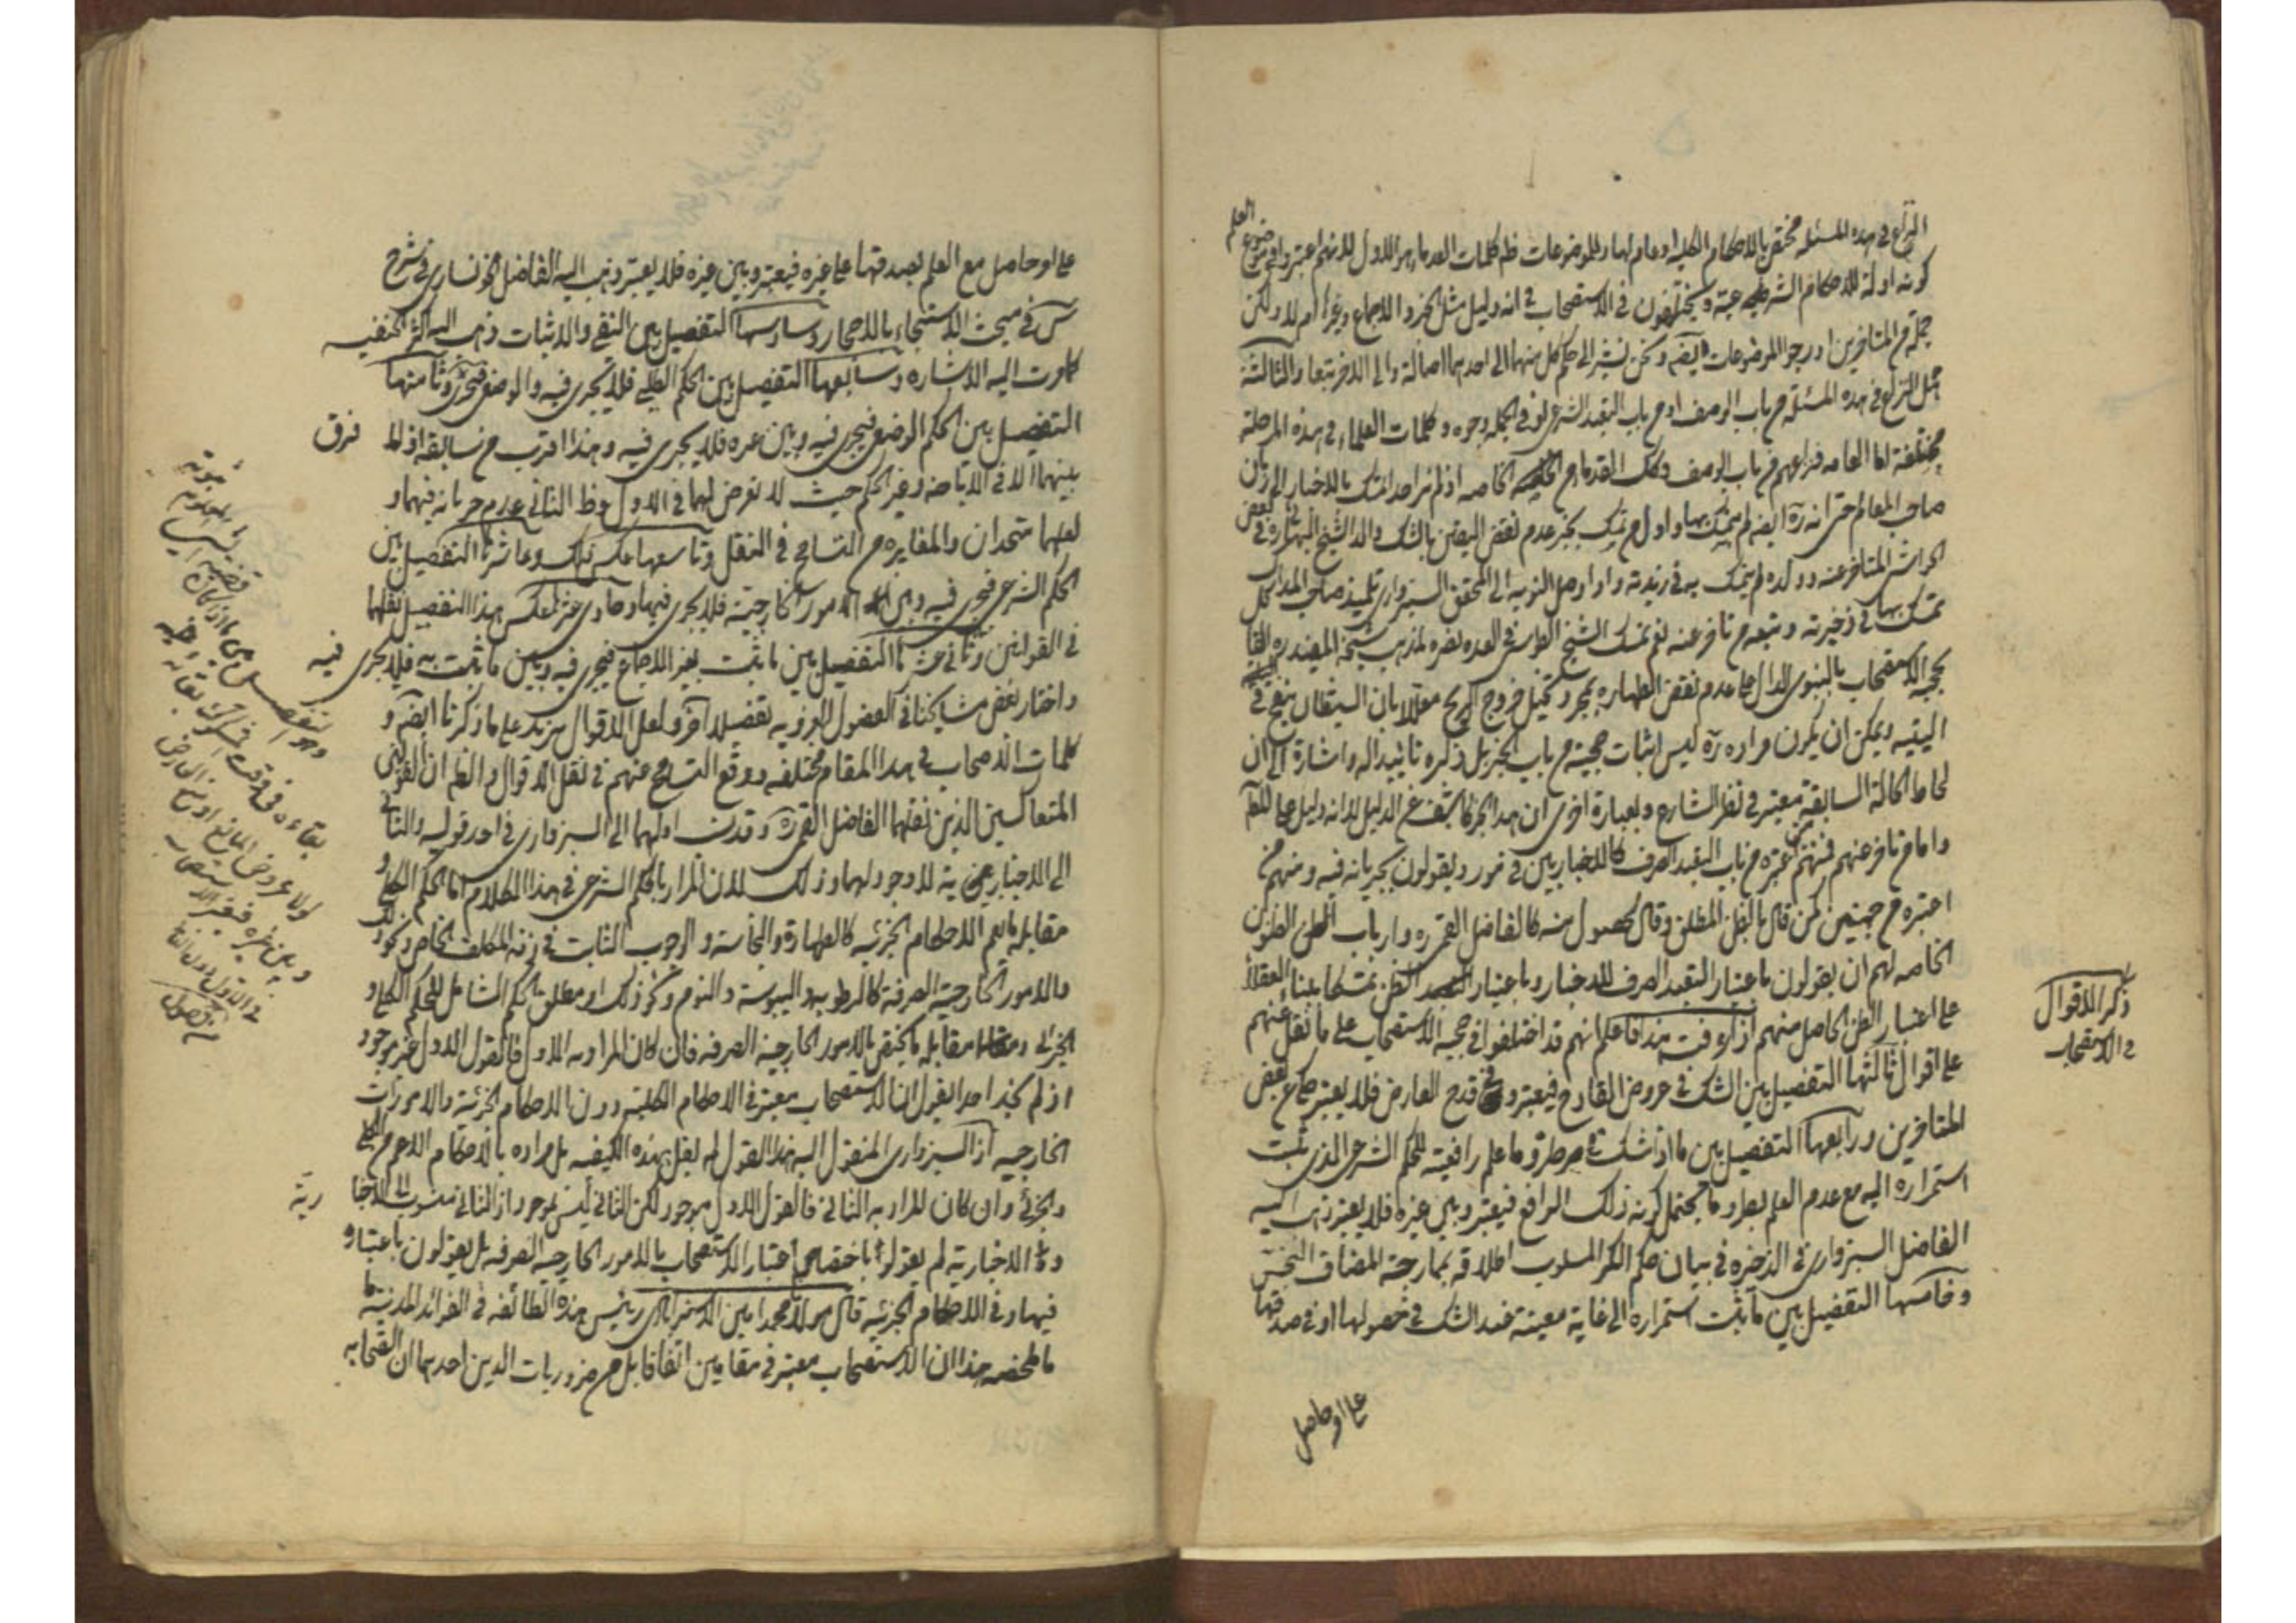 النزاع في هذه المسئلة مختص بالاحكام الكلية او عام لها وللموضوعات ظ كلمات القدماء هو الاول لانهم اعتبروا في موضوع العلم
كونه ادلة للاحكام الشرعية ويختلفون في الاستصحاب في انه دليل مثل الخبر والاجماع وغيرها ام لا ولكن
جملة من المتاخرين ادرجوا الموضوعات ايضه ونحن نشير الى حكم كل منهما الى احدهما اصالة والى الاخر تبعا والثالثة
هل النزاع في هذه المسئلة من باب الوصف او من باب التعبد الشرعي لو في الجملة وجوه وكلمات العلماء في هذه المرحلة
مختلفة اما العامه فنزاعهم من باب الوصف وكك القدماء من الخاصه اذ لم نر احدا تمسك بالاخبار الى زمان
صاحب المعالم حتى انه ره ايضه لم يتمسك بها واول من تمسك بخبر عدم نقض اليقين بالشك والد الشيخ البهائي ره في بعض
الحواشي المتاخر عنه وولده لم يتمسك به في زبدته واذا وصل النوبه الى المحقق السبزواري تلميذ صاحب المدارك
تمسك بها في ذخيرته وتبعه من تاخر عنه نعم تمسك الشيخ الطوسي في العده نصره لمذهب شيخه المفيد ره القائل
بحجية الاستصحاب بالنبوي الدال على عدم نقض الطهاره بمجرد تخييل خروج الريح معللا بان الشيطان ينفخ في
اليتيه ويمكن ان يكون مراده ره ليس اثبات حجيته من باب الخبر بل ذكره تائيدا له واشارة الى ان
لحاظ الحالة السابقة معتبر في نظر الشارع وبعبارة اخرى ان هذا الخبر كاشف عن الدليل لا انه دليل على المط
واما من تاخر عنهم فمنهم من اعتبره من باب التعبد الصرف كالاخباريين في مورد يقولون بجريانه فيه ومنهم من
اعتبره من جهتين كمن قال بالظن المطلق وقال بحصول منه كالفاضل القمي ره وارباب الظن الظنون
الخاصه لهم ان يقولون باعتبار التعبد الصرف للاخبار وباعتبار الظن تمسكا ببناء العقلاء
على اعتبار الظن الحاصل منهم اذا عرفت هذا فاعلم انهم قد اختلفوا في حجية الاستصحاب على ما نقل عنهم
على اقوال ثالثها التفصيل بين الشك في عروض القادح فيعتبر وفي قدح العارض فلا يعتبر حكي عن بعض
المتاخرين ورابعها التفصيل بين ما اذا شك في طرو ما علم رافعيته للحكم الشرعي الذي ثبت
استمراره اليه مع عدم العلم بطرو ما يحتمل كونه ذلك الرافع فيعتبر وبين غيره فلا يعتبر ذهب اليه
الفاضل السبزواري في الذخيره في بيان حكم الكر المسلوب اطلاقه بممازجة المضاف النجس
وخامسها التفصيل بين ما ثبت استمراره الى غاية معينة فعند الشك في حصولها او في صدقها
على او حاصل
ذكر الاقوال
في الاستصحاب
على او حاصل مع العلم بصدقها على غيره فيعتبر وبين غيره فلا يعتبر وذهب اليه الفاضل الخونساري في شرح
س في مبحث الاستنجاء بالاحجار وسادسها التفصيل بين النفي والاثبات وذهب اليه اكثر الحنفيه
كما مرت اليه الاشاره وسابعها التفصيل بين الحكم الطلبي فلا يجري فيه والوضعي فيجري وثامنها
التفصيل بين الحكم الوضعي فيجري فيه وبين غيره فلا يجري فيه وهذا اقرب من سابقه اذ لا فرق
بينهما الا في الاباحه وغير الحكم حيث لا تعرض لهما في الاول وظ الثاني عدم جريانه فيهما و
لعلهما متحدان والمغايره من التسامح في النقل وتاسعها عكس ذلك وعاشرها التفصيل بين
الحكم الشرعي فيجري فيه وبين الامور الخارجية فلا يجري فيها وحادي عشرها عكس هذا التفصيل نقلهما
في القوانين وثاني عشرها التفصيل بين ما ثبت بغير الاجماع فيجري فيه وبين ما ثبت به فلا يجري فيه
واختار بعض مشايخنا في الفصول الغرويه تفصيلا آخر ولعل الاقوال يزيد على ما ذكرنا ايضه و
كلمات الاصحاب في هذا المقام مختلفه ووقع التسامح عنهم في نقل الاقوال والظ ان القولين
المتعاكسين الذين نقلهما الفاضل القمي ره وقد نسب اولهما الى السبزواري في احد قوليه والثاني
الى الاخباريين لا وجود لهما وذلك لان المراد بالحكم الشرعي في هذا الكلام اما الحكم الكلي و
مقابله ما يعم الاحكام الجزئيه كالطهارة والنجاسة والوجوب الثابت في ذمة المكلف الخاص ونحو ذلك
والامور الخارجية الصرفة كالرطوبة واليبوسة والنوم ونحو ذلك او مطلق الحكم الشامل للحكم الكلي و
الجزئي ومقابله ما يختص بالامور الخارجية الصرفه فان كان المراد به الاول فالقول الاول غير موجود
اذ لم نجد احدا يقول ان الاستصحاب معتبر في الاحكام الكلية دون الاحكام الجزئية والامورات
الخارجيه اذ السبزواري المنقول اليه هذا القول لم يقل بهذه الكيفيه بل مراده بالاحكام الاعم من الكلي
والجزئي وان كان المراد به الثاني فالقول الاول موجود لكن الثاني ليس بموجود اذ الثاني منسوب الى الاخبارية
والاخبارية لم يقولوا باختصاص اعتبار الاستصحاب بالامور الخارجية الصرفه بل يقولون باعتباره
فيها وفي الاحكام الجزئيه قال مولانا محمد امين الاسترابادي رئيس هذه الطائفه في الفوائد المدنية ما
ملخصه هذا ان الاستصحاب معتبر في مقامين اتفاقا بل من ضروريات الدين احدهما ان الصحابه